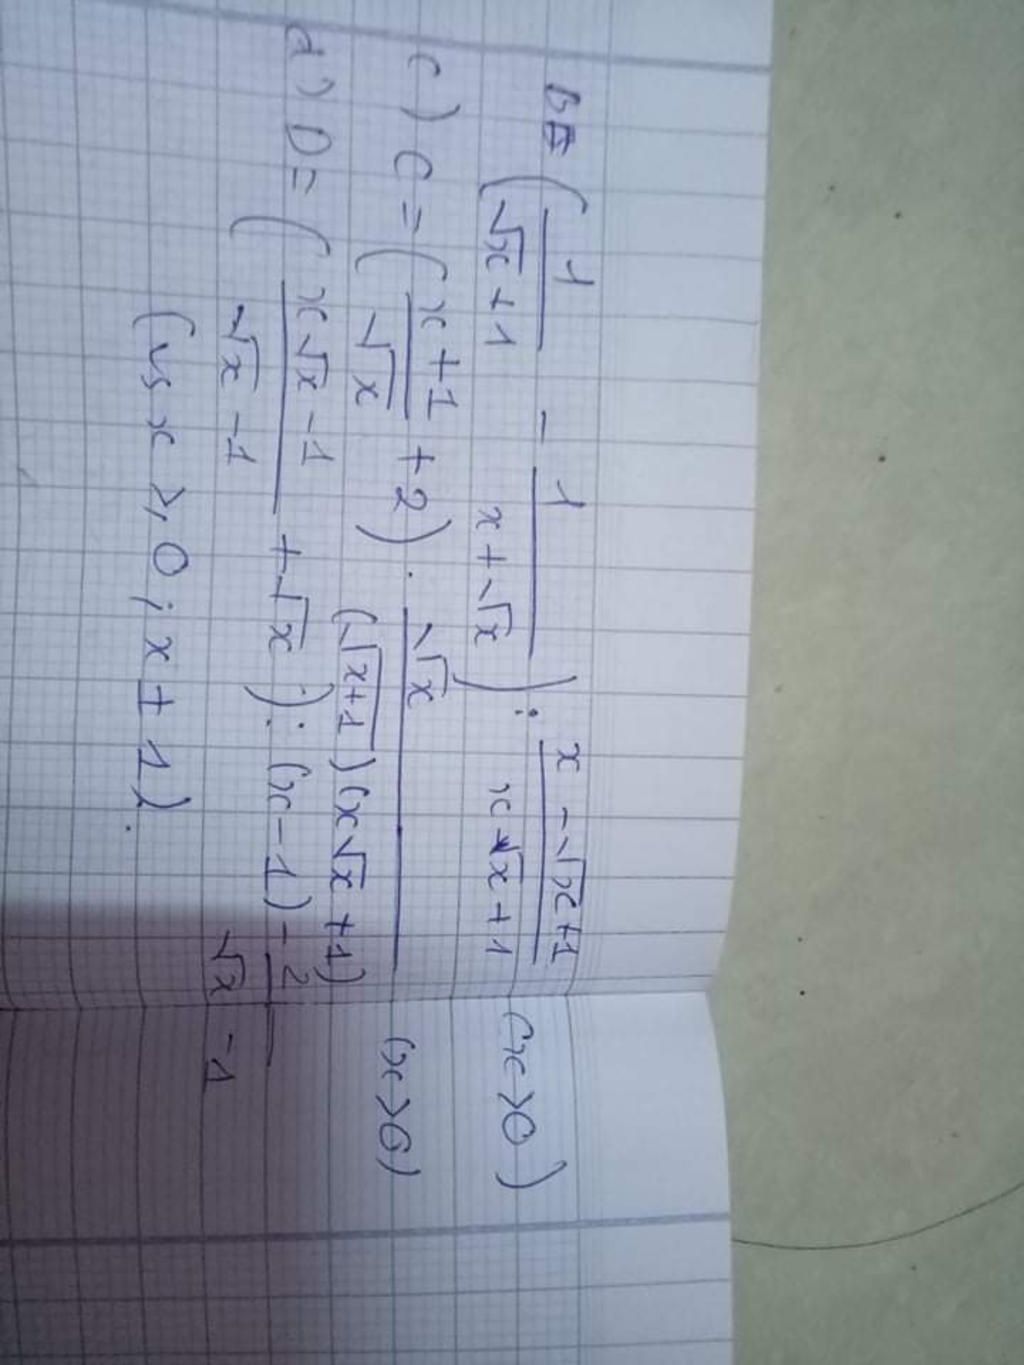 B = (1/(√x + 1) - 1/(x + √x)) : (x - √x + 1)/(x√x + 1) (x > 0)
c) C = ((x + 1)/√x + 2) . √x/((√x+1)(x√x + 1)) (x > 0)
d) D = ((x√x - 1)/(√x - 1) + √x) : (x - 1) - 2/(√x - 1)
(vs x ≥ 0 ; x ≠ 1).